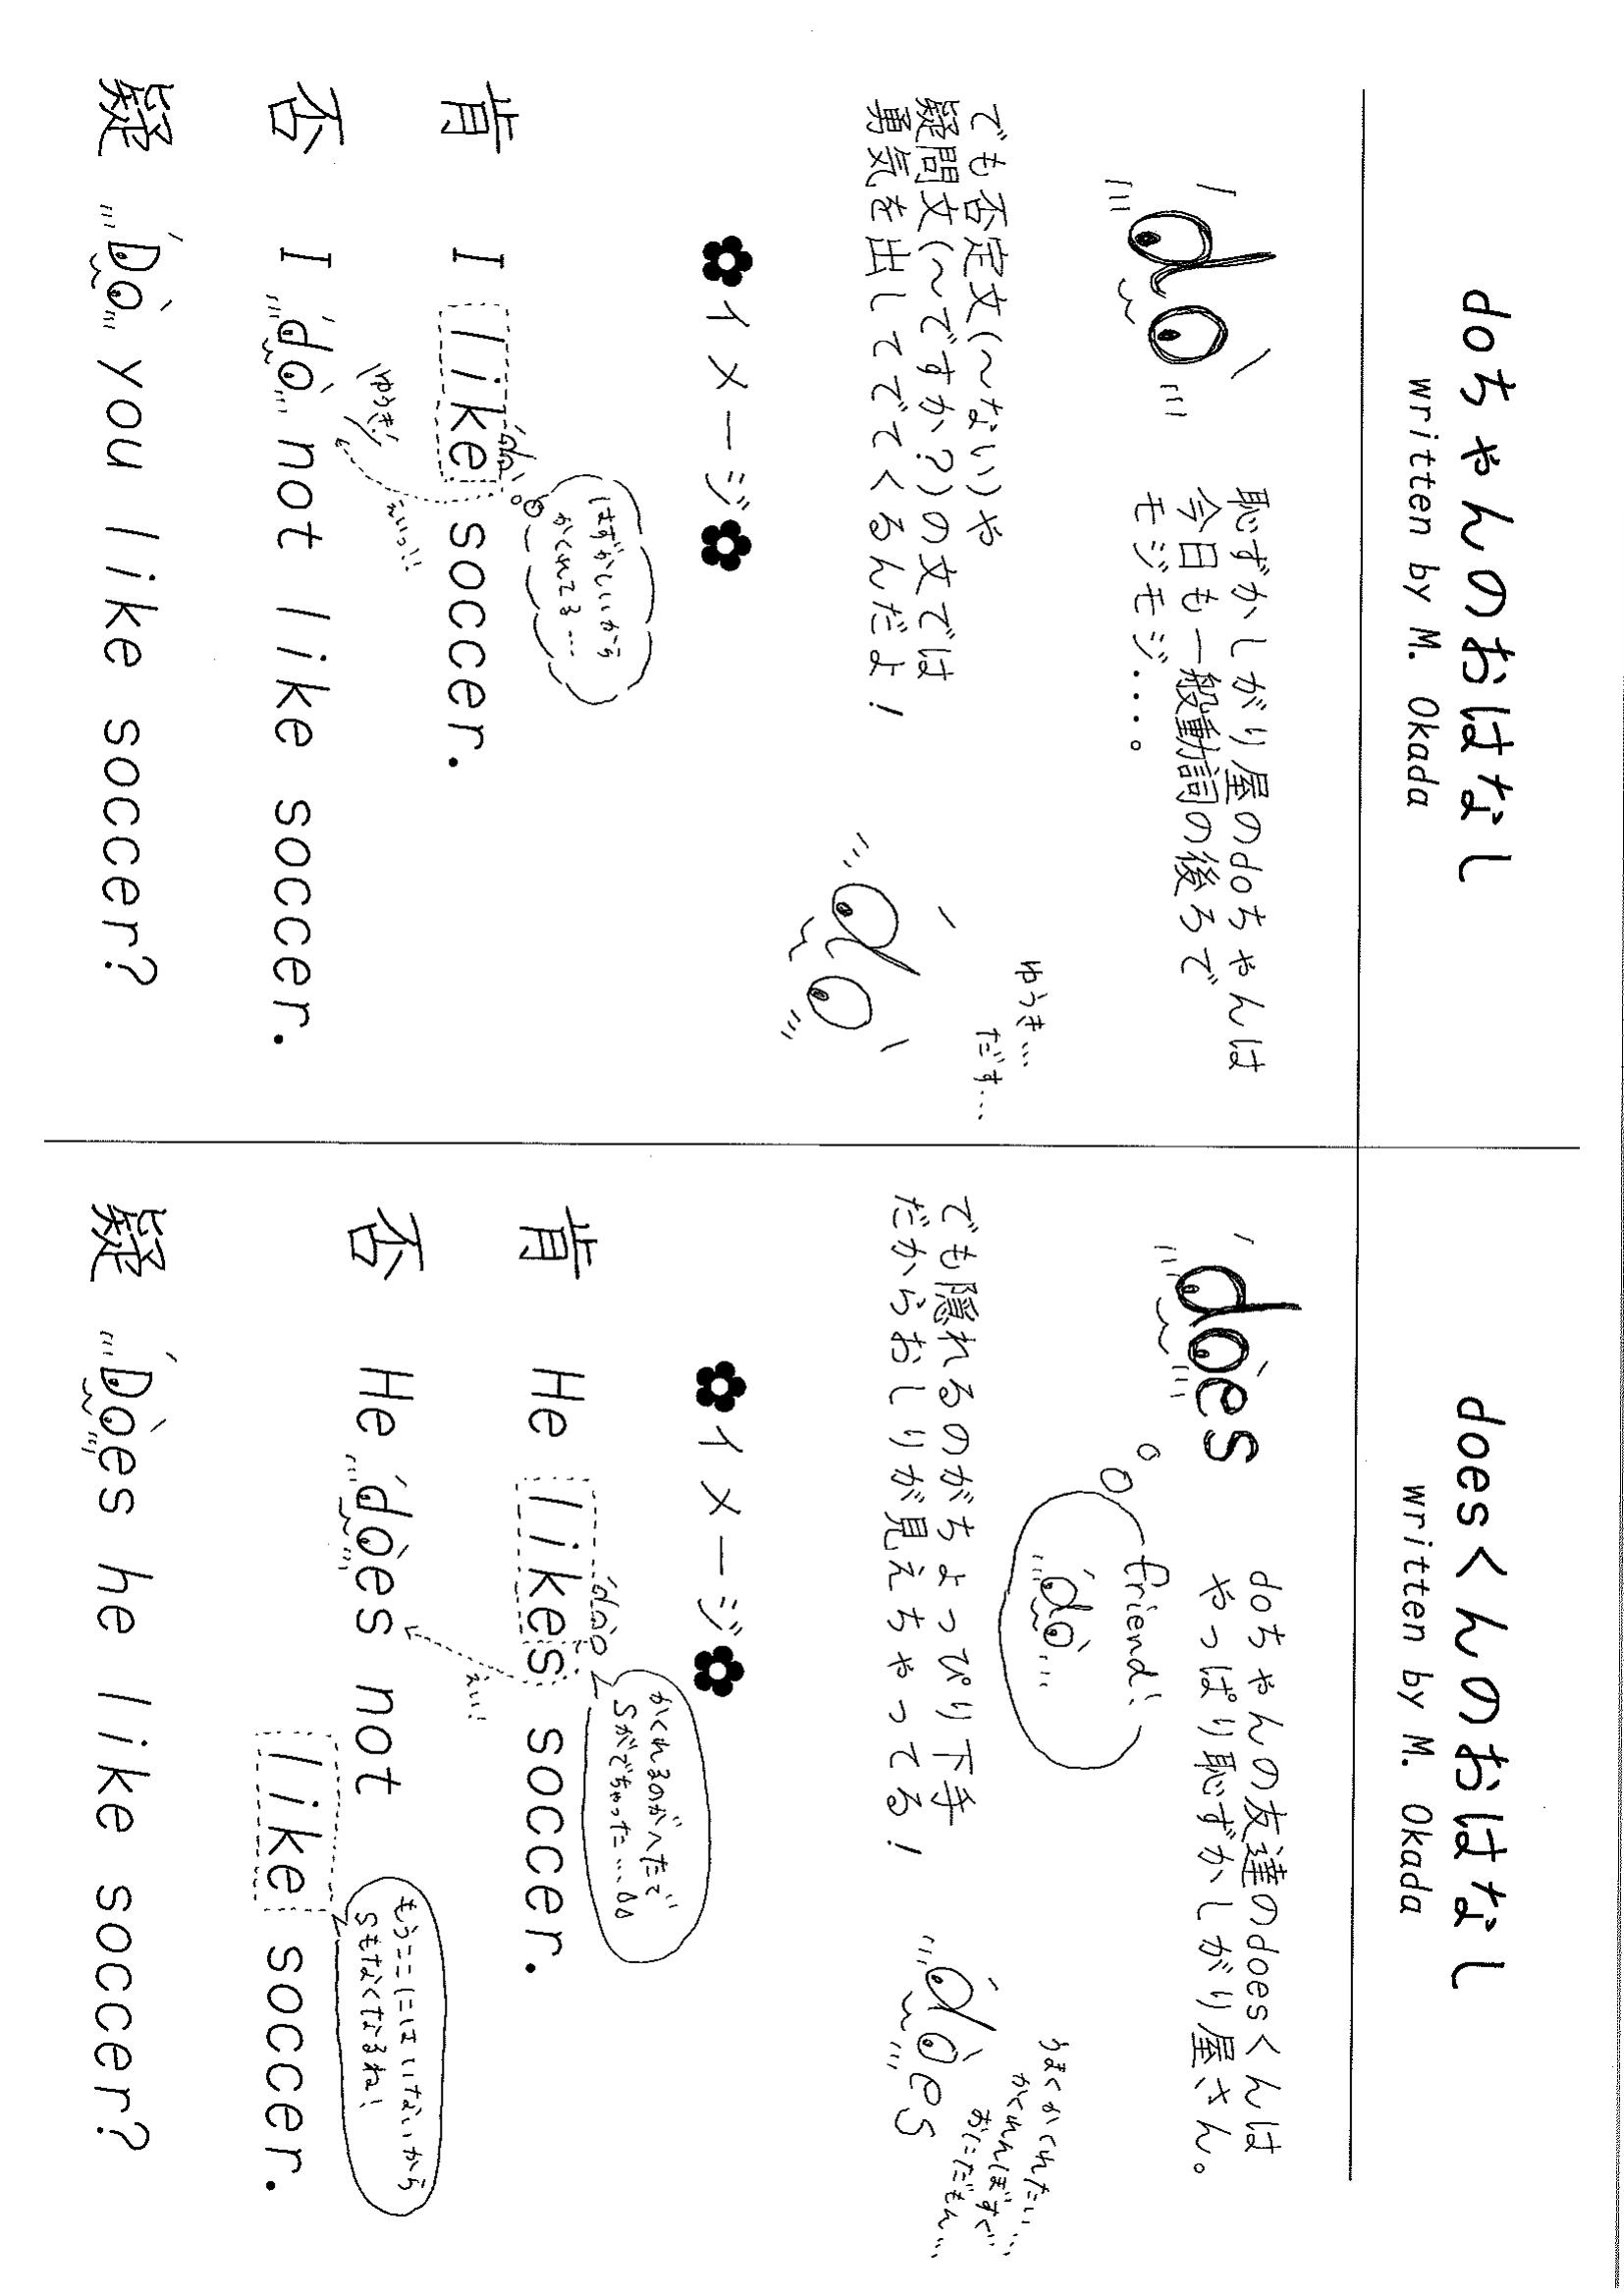 doちゃんのおはなし
written by M. Okada
do
恥ずかしがり屋のdoちゃんは
今日も一般動詞の後ろで
モジモジ・・・。
でも否定文(～ない)や
疑問文(～ですか?)の文では
勇気を出してでてくるんだよ!
ゆうき…
だす…
do
✿イメージ✿
はずかしいから
かくれてる…
do
肯 I like soccer.
ゆうき!
えいっ!!
否 I do not like soccer.
疑 Do you like soccer?
doesくんのおはなし
written by M. Okada
does
doちゃんの友達のdoesくんは
やっぱり恥ずかしがり屋さん。
friend!
do
でも隠れるのがちょっぴり下手
だからおしりが見えちゃってる!
うまくかくれたい…
かくれんぼすぐ
おにだもん…
does
✿イメージ✿
かくれるのがへたで
sがでちゃった…
do
肯 He likes soccer.
えい!
否 He does not
もうここにはいないから
sもなくなるね!
like soccer.
疑 Does he like soccer?